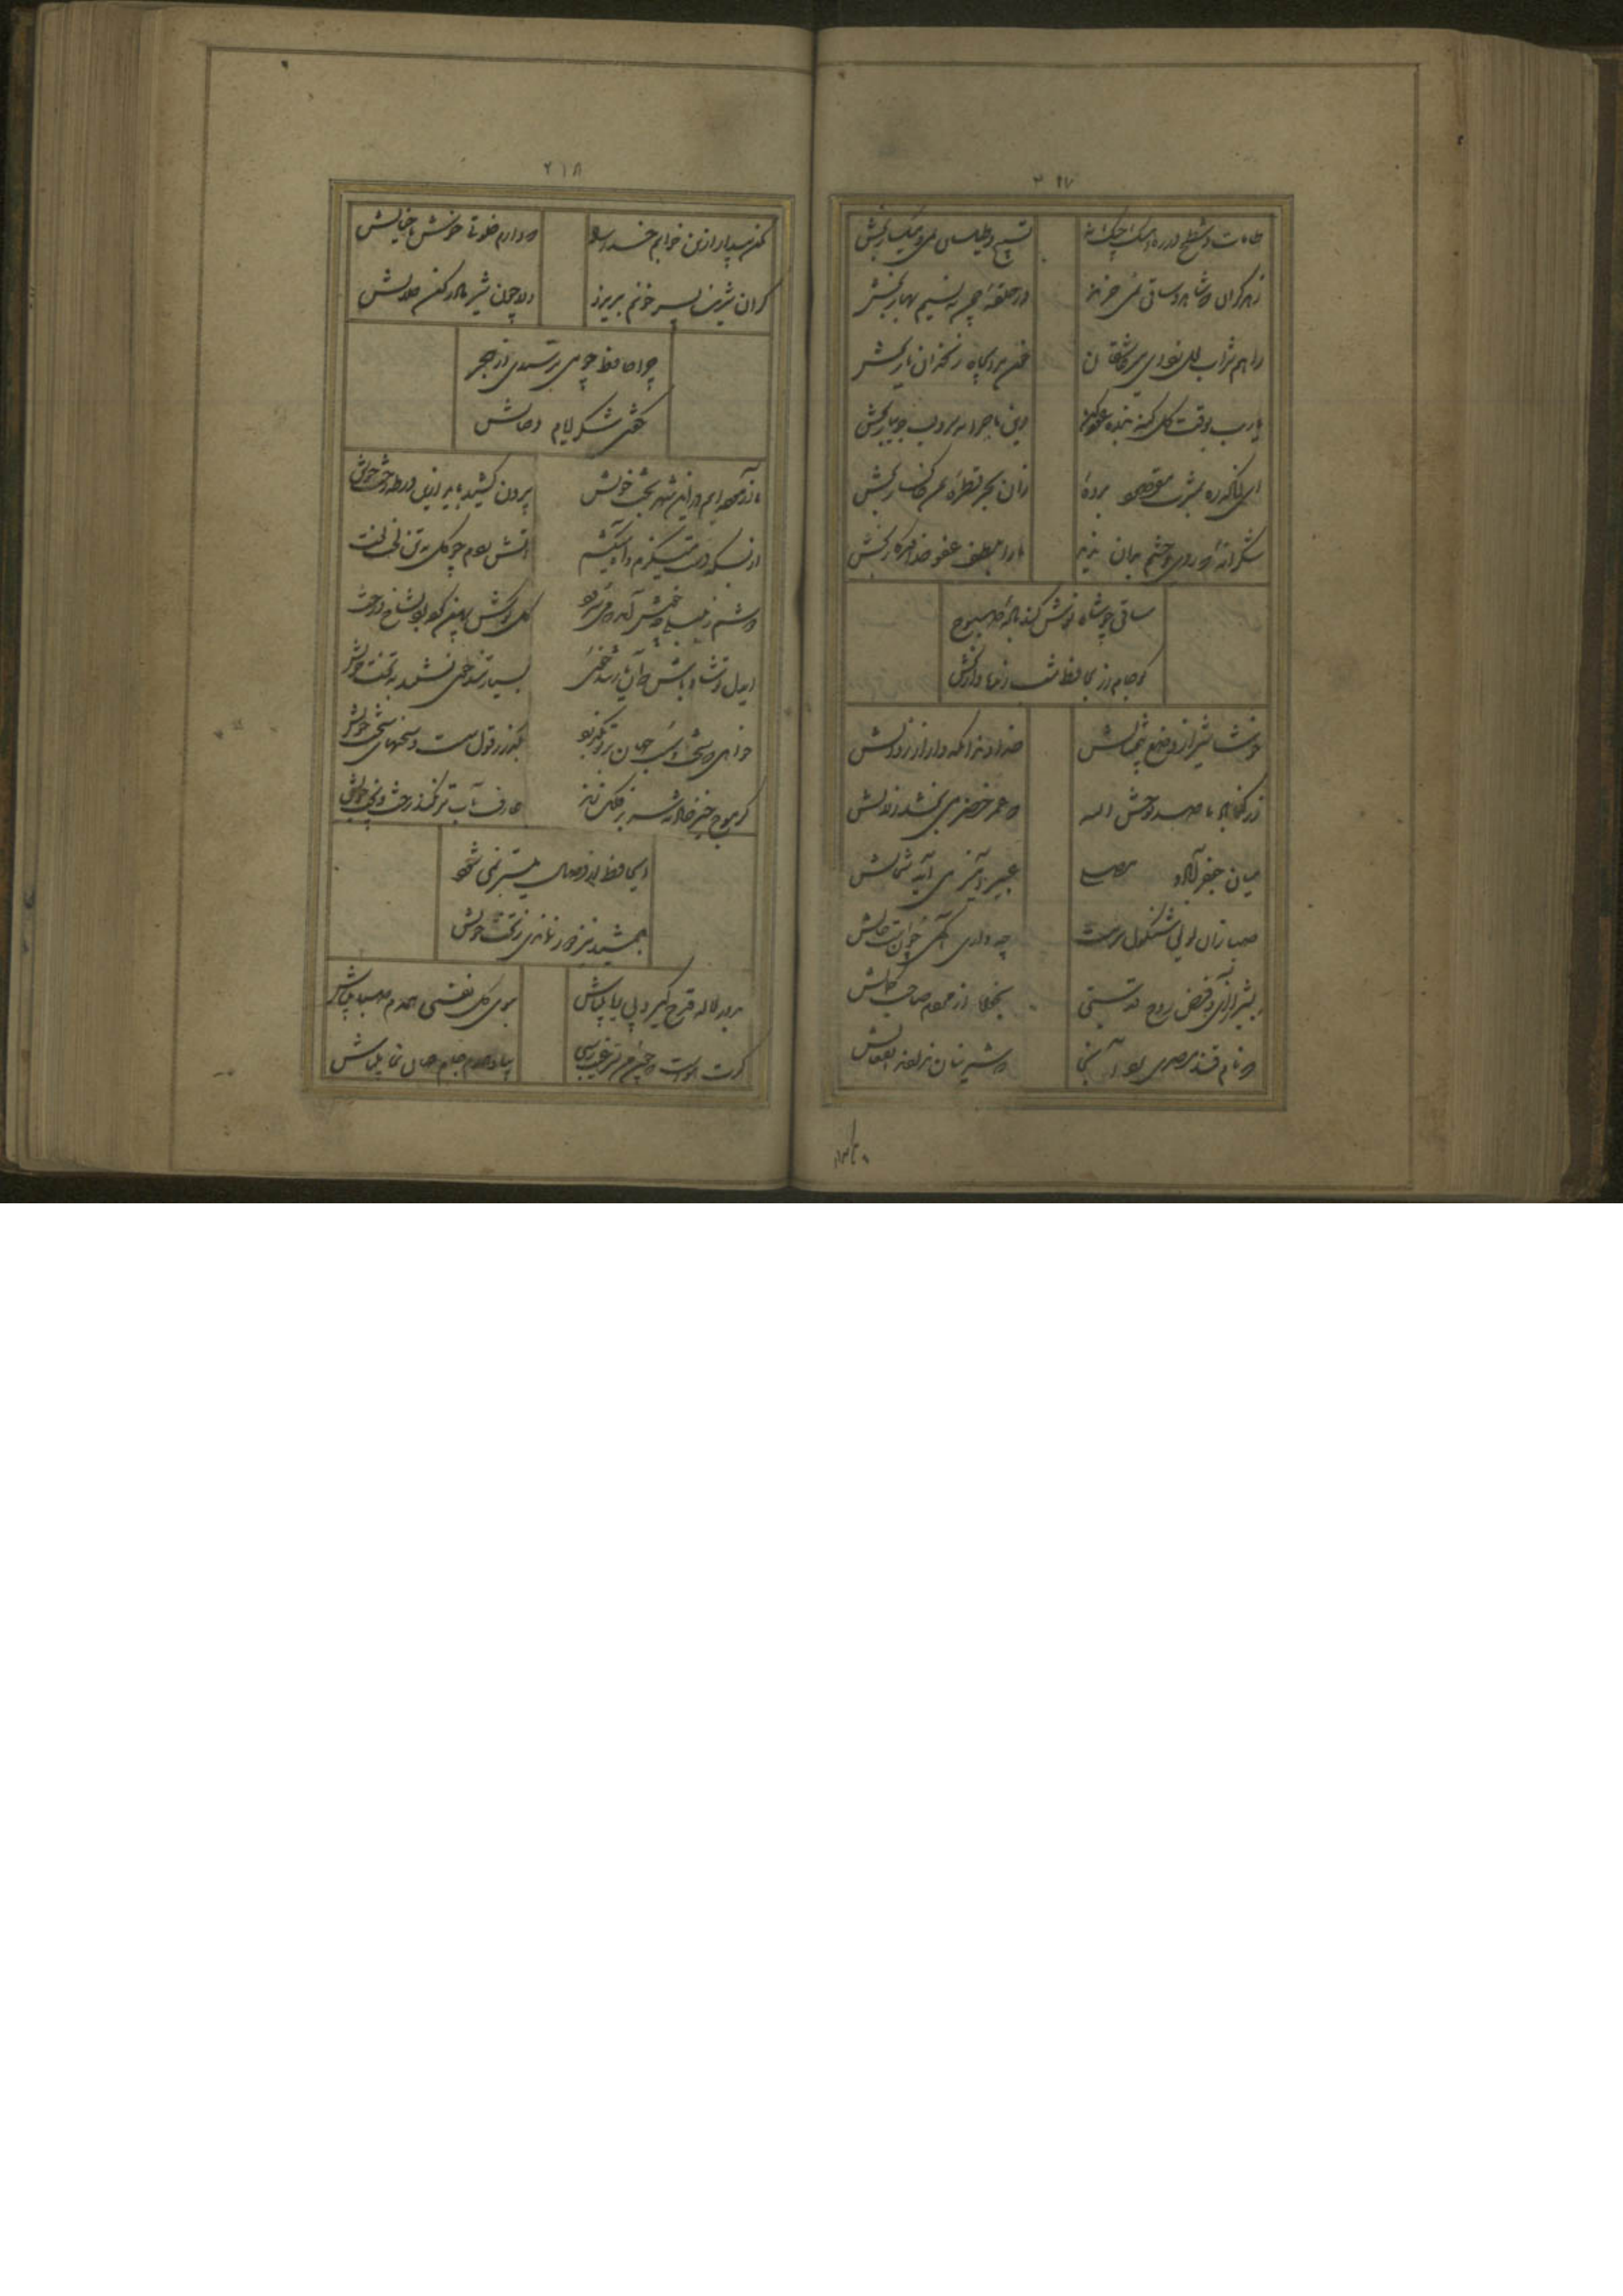 ۲۱۷
طامات و شطح در ره آهنگ چنگ نه تسبیح و طیلسان بمی و میگسار بخش
زهد گران که شاهد و ساقی نمی خرند در حلقه چمن به نسیم بهار بخش
راهم شراب لعل زد ای میر عاشقان خون مرا بچاه زنخدان یار بخش
یارب بوقت گل گنه بنده عفو کن وین ماجرا بسرو لب جویبار بخش
ای آنکه ره بمشرب مقصود برده زان بحر قطره بمن خاکسار بخش
شکرانه که روی تو چشم بدان ندید ما را بلطف عفو خداوندگار بخش
ساقی چو شاه نوش کند باده صبوح
گو جام زر بحافظ شب زنده دار بخش
خوشا شیراز و وضع بیمثالش خداوندا نگه دار از زوالش
ز رکناباد ما صد لوحش الله که عمر خضر می بخشد زلالش
میان جعفرآباد و مصلی عبیرآمیز می آید شمالش
صبا زان لولی شنگول سرمست چه داری آگهی چونست حالش
بشیراز آی و فیض روح قدسی بخواه از مردم صاحب کمالش
که نام قند مصری برد آنجا که شیرینان ندادند انفعالش
۲۱۸
مکن بیدار ازین خوابم خدا را که دارم خلوتی خوش با خیالش
گر آن شیرین پسر خونم بریزد دلا چون شیر مادر کن حلالش
چرا حافظ چو می ترسیدی از هجر
نکردی شکر ایام وصالش
ما آزموده ایم درین شهر بخت خویش بیرون کشید باید ازین ورطه رخت خویش
از بسکه دست میگزم و آه میکشم آتش زدم چو گل بتن لخت لخت خویش
دوشم ز بلبلی چه خوش آمد که می سرود گل گوش پهن کرده ز شاخ درخت خویش
ایدل تو شاد باش که آن یار تندخوی بسیار تندخوی نشیند ز بخت خویش
خواهی که سخت و سست جهان بر تو بگذرد بگذر ز قول سست و سخنهای سخت خویش
گر موج خیز حادثه سر بر فلک زند عارف بآب تر نکند رخت و پخت خویش
ای حافظ ار وصال میسر نمی شود
جمشید نیز دور نماندی ز تخت خویش
بدور لاله قدح گیر و بی ریا میباش ببوی گل نفسی همدم صبا میباش
گرت هواست که چون جم بسر غیب رسی بیا و همدم جام جهان نما میباش